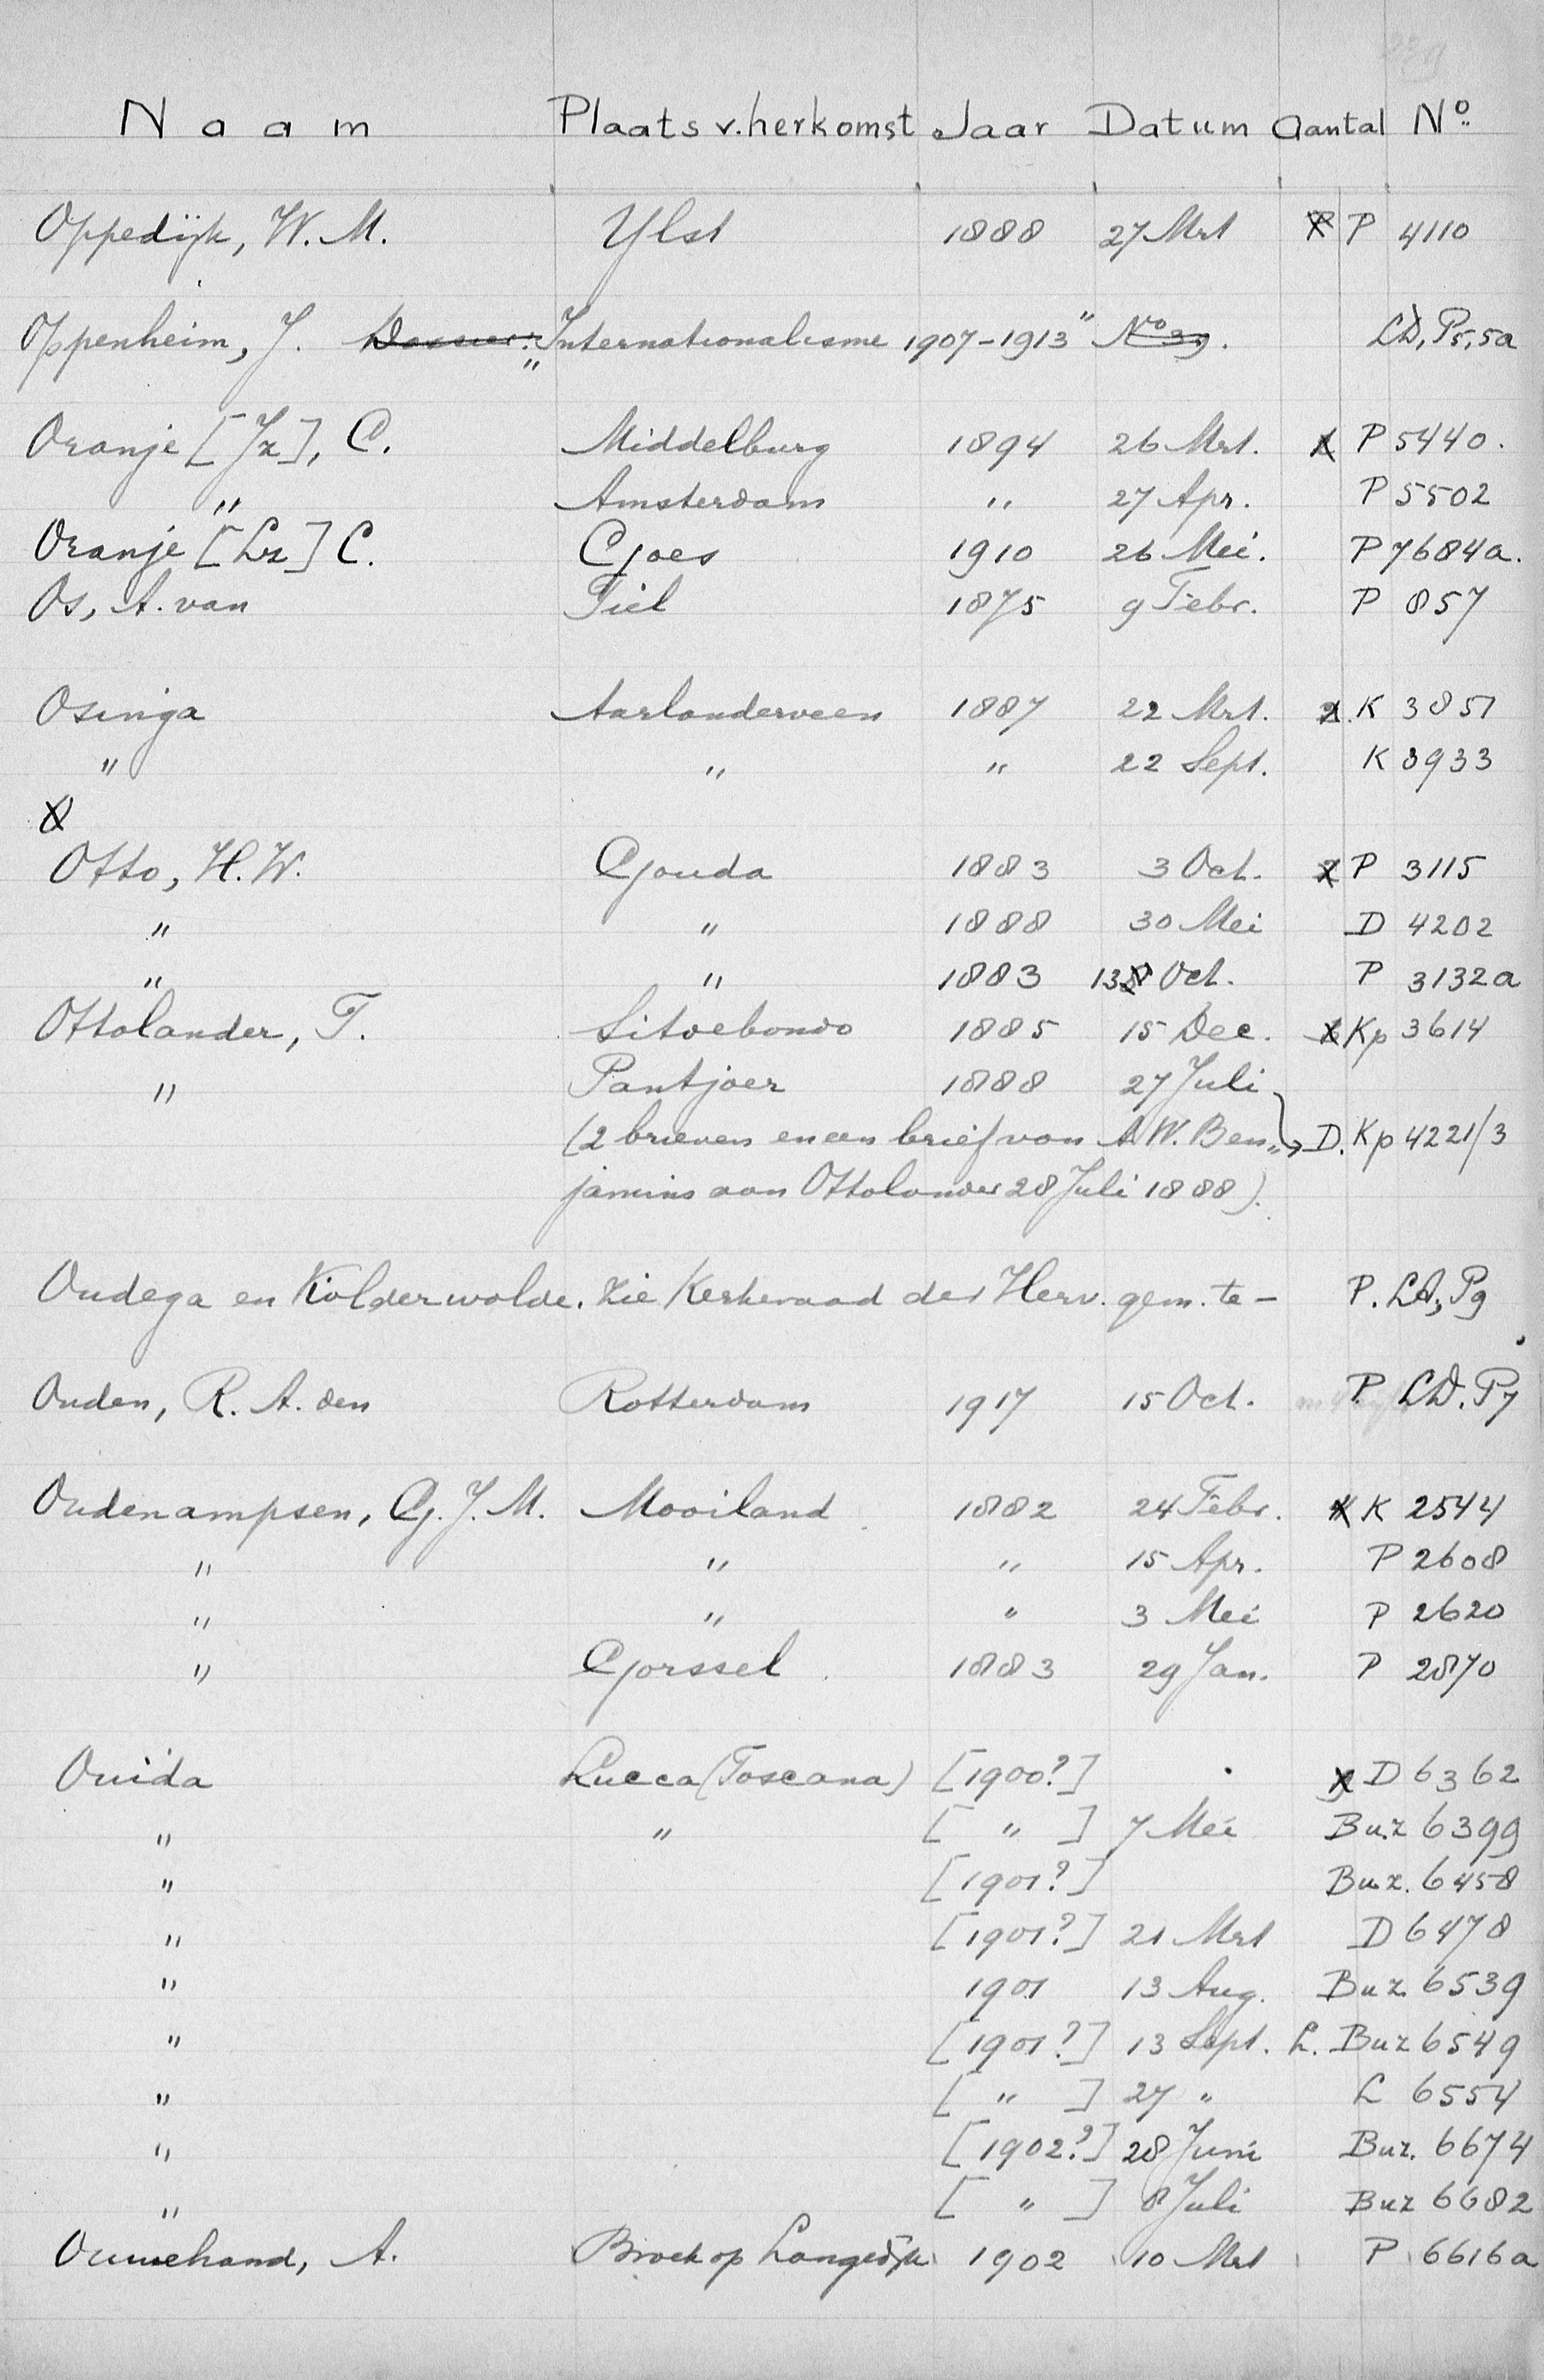 Naam Plaats v. herkomst Jaar Datum Aantal No.
Oppedijk, W. M. Ylst 1888 27 Mrt P 4110
Oppenheim, J. Dossier: "Internationalisme 1907-1913" No 39. LD, P5,5a
Oranje [Jz], C. Middelburg 1894 26 Mrt. P 5440.
" Amsterdam " 27 Apr. P 5502
Oranje [Lz] C. Goes 1910 26 Mei. P 7684a.
Os, A. van Tiel 1875 9 Febr. P 857
Osinga Aarlanderveen 1887 22 Mrt. K 3851
" " " 22 Sept. K 3933
Otto, H. W. Gouda 1883 3 Oct. P 3115
" " 1888 30 Mei D 4202
" " 1883 13 Oct. P 3132a
Ottolander, T. Sitoebondo 1885 15 Dec. Kp 3614
" Pantjoer 1888 27 Juli
(2 brieven en een brief van A W. Ben= D. Kp 4221/3
jamins aan Ottolander 28 Juli 1888).
Oudega en Kolderwolde. Zie Kerkeraad der Herv. gem. te - P. LD, P9
Ouden, R. A. den Rotterdam 1917 15 Oct. P. LD. P7
Oudenampsen, G. J. M. Mooiland 1882 24 Febr. K 2544
" " " 15 Apr. P 2608
" " " 3 Mei P 2620
" Gorssel 1883 29 Jan. P 2870
Ouida Lucca (Toscana) [1900?] D 6362
" " [ " ] 7 Mei Buz 6399
" [1901?] Buz. 6458
" [1901?] 21 Mrt D 6478
" 1901 13 Aug. Buz. 6539
" [1901?] 13 Sept. L. Buz 6549
" [ " ] 27 " L 6554
" [1902?] 28 Juni Buz. 6674
" [ " ] 8 Juli Buz 6682
Ouwehand, A. Broek op Langedijk 1902 10 Mrt P 6616a